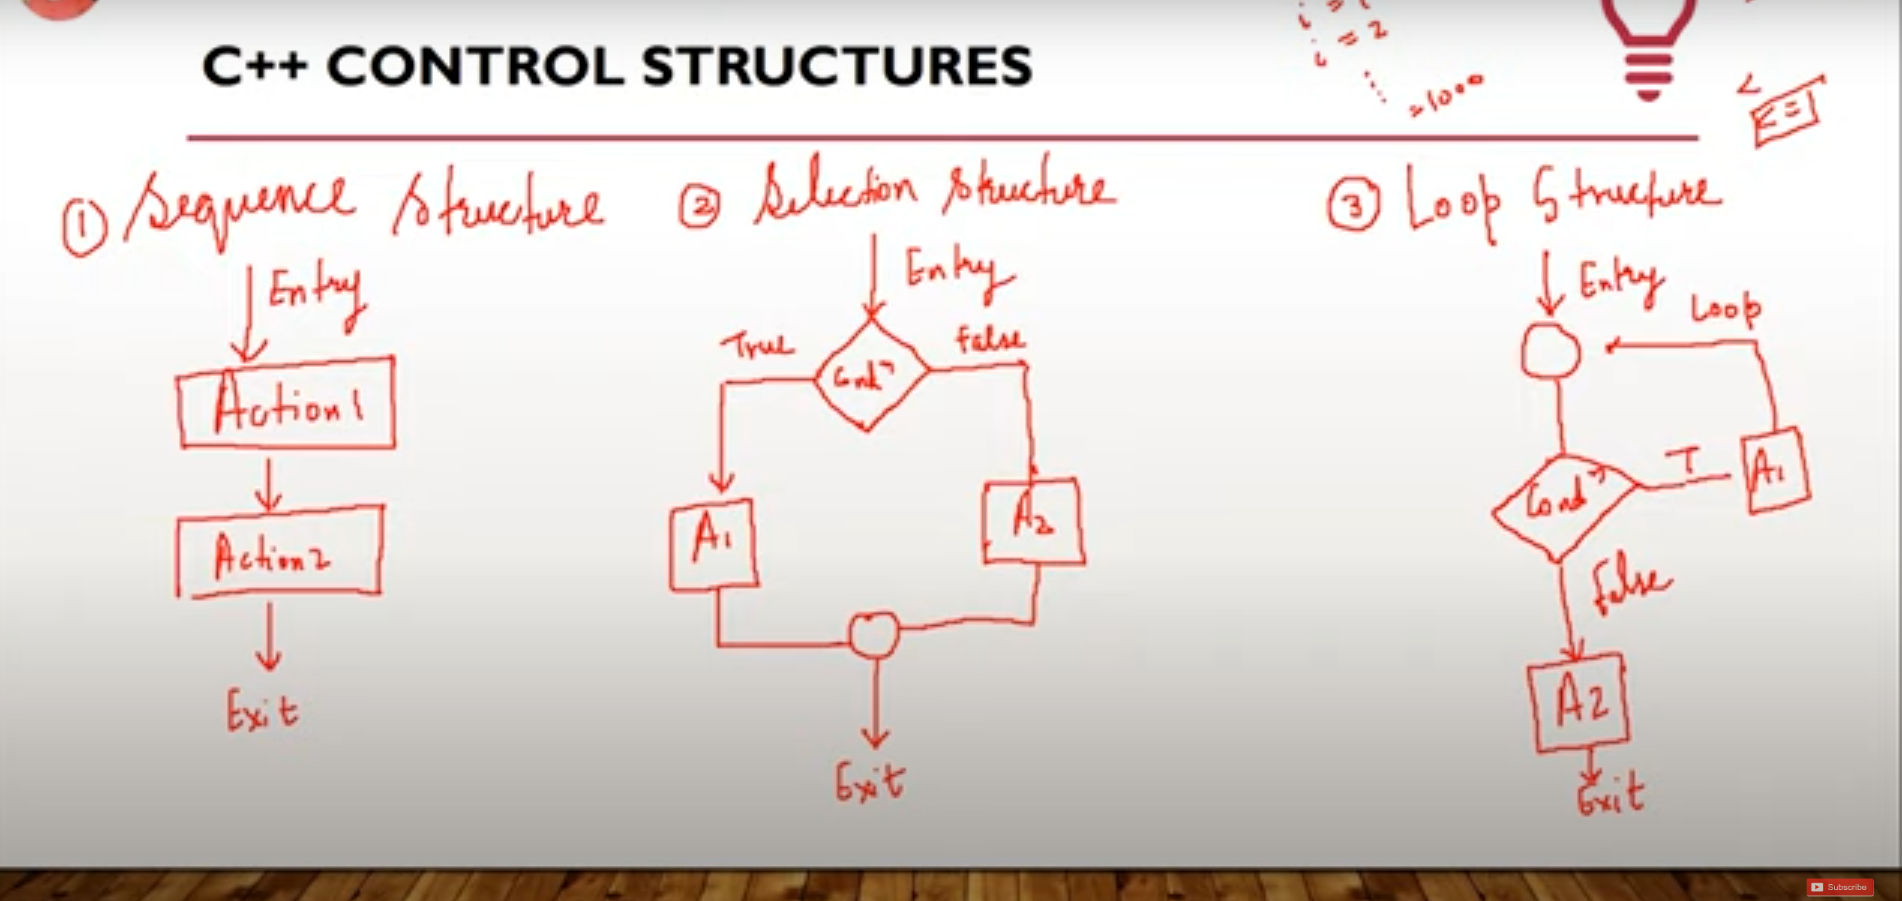 C++ CONTROL STRUCTURES
i = 2
=1000
① Sequence Structure
Entry
Action1
Action2
Exit
② Selection Structure
Entry
True
False
Condn
A1
A2
Exit
③ Loop Structure
Entry
Loop
Condn
T
A1
False
A2
Exit
Subscribe